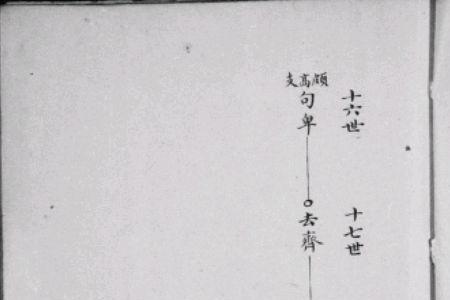 十六世
十七世
頎高支
句卑
去齊